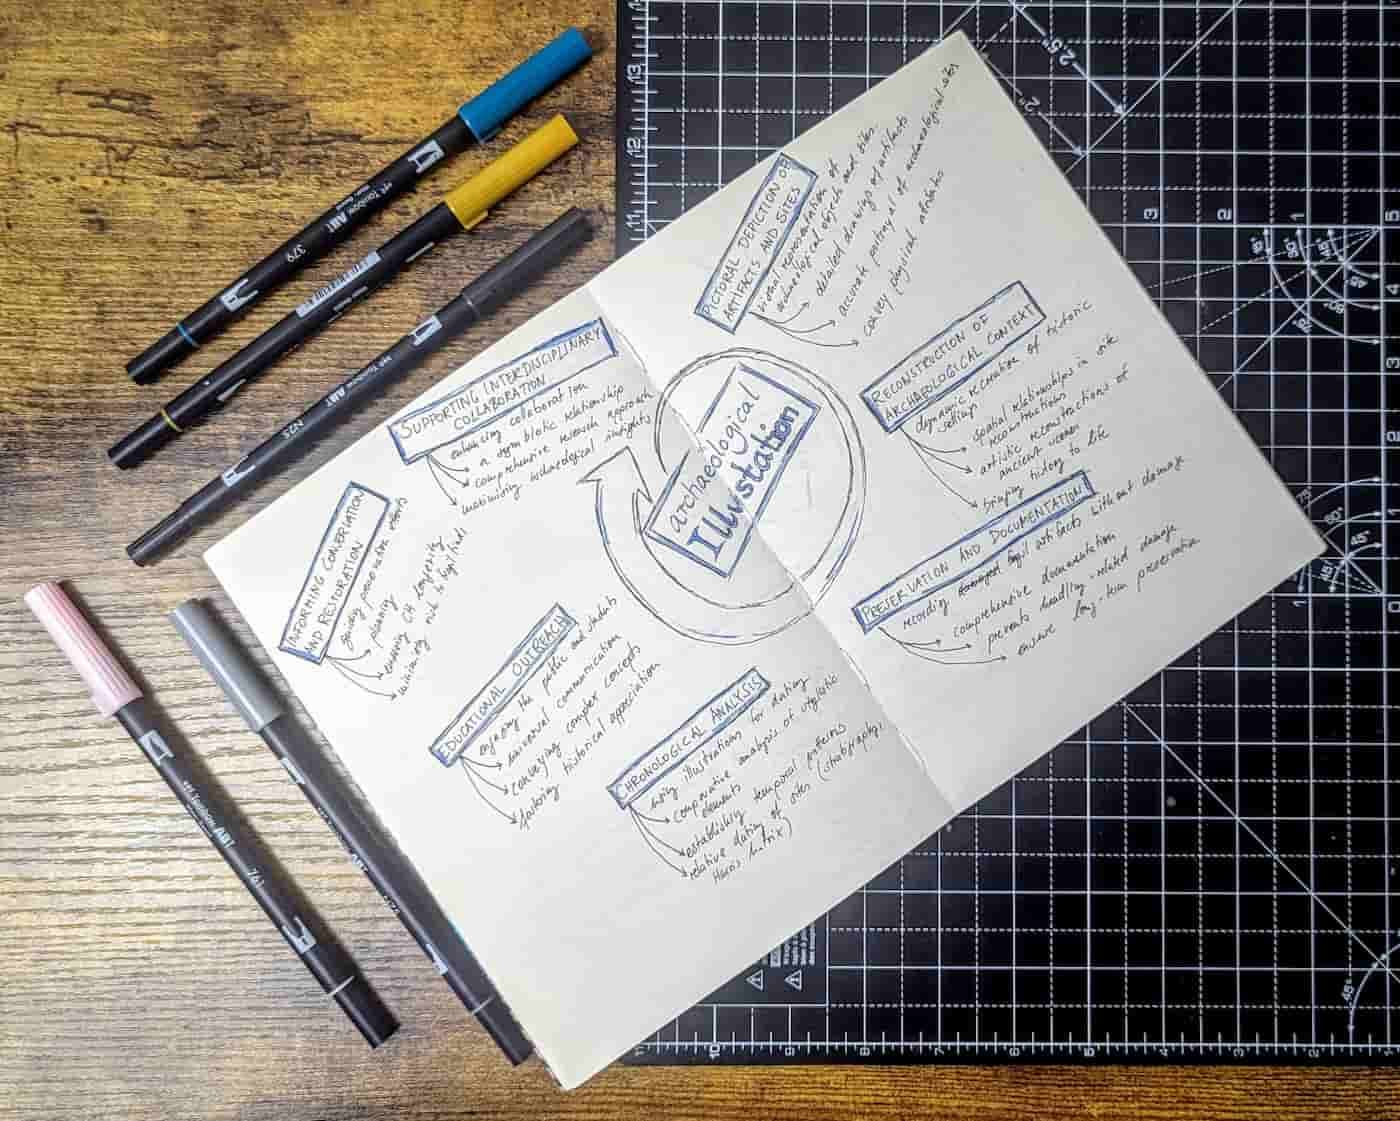 archaeological
Illustation
PICTORAL DEPICTION OF
ARTIFACTS AND SITES
visual representation of
archaeological objects and sites
detailed drawings of artifacts
accurate portrayal of archaeological sites
convey physical attributes
RECONSTRUCTION OF
ARCHAEOLOGICAL CONTEXT
dynamic recreation of historic
settings
spatial relationships in site
reconstructions
artistic reconstructions of
ancient scenes
bringing history to life
PRESERVATION AND DOCUMENTATION
recording fragil artifacts without damage
comprehensive documentation
prevents handling-related damage
ensure long-term preservation
CHRONOLOGICAL ANALYSIS
using illustrations for dating
comparative analysis of stylistic
elements
establishing temporal patterns
relative dating of sites (stratigraphy,
Harris Matrix)
EDUCATIONAL OUTREACH
engaging the public and students
universal communication
conveying complex concepts
fostering historical appreciation
INFORMING CONSERVATION
AND RESTORATION
guiding preservation efforts
planning
ensuring CH longevity
minimising risk to fragil finds
SUPPORTING INTERDISCIPLINARY
COLLABORATION
enhancing collaboration
a symbiotic relationship
comprehensive research approach
maximising archaeological insights
Tombow ABT
379
ABT
N25
Tombow ABT
761
13
12
11
3
2
1
4
5
1
2.5"
2"
45°
11
10
9
8
7
6
5
4
3
2